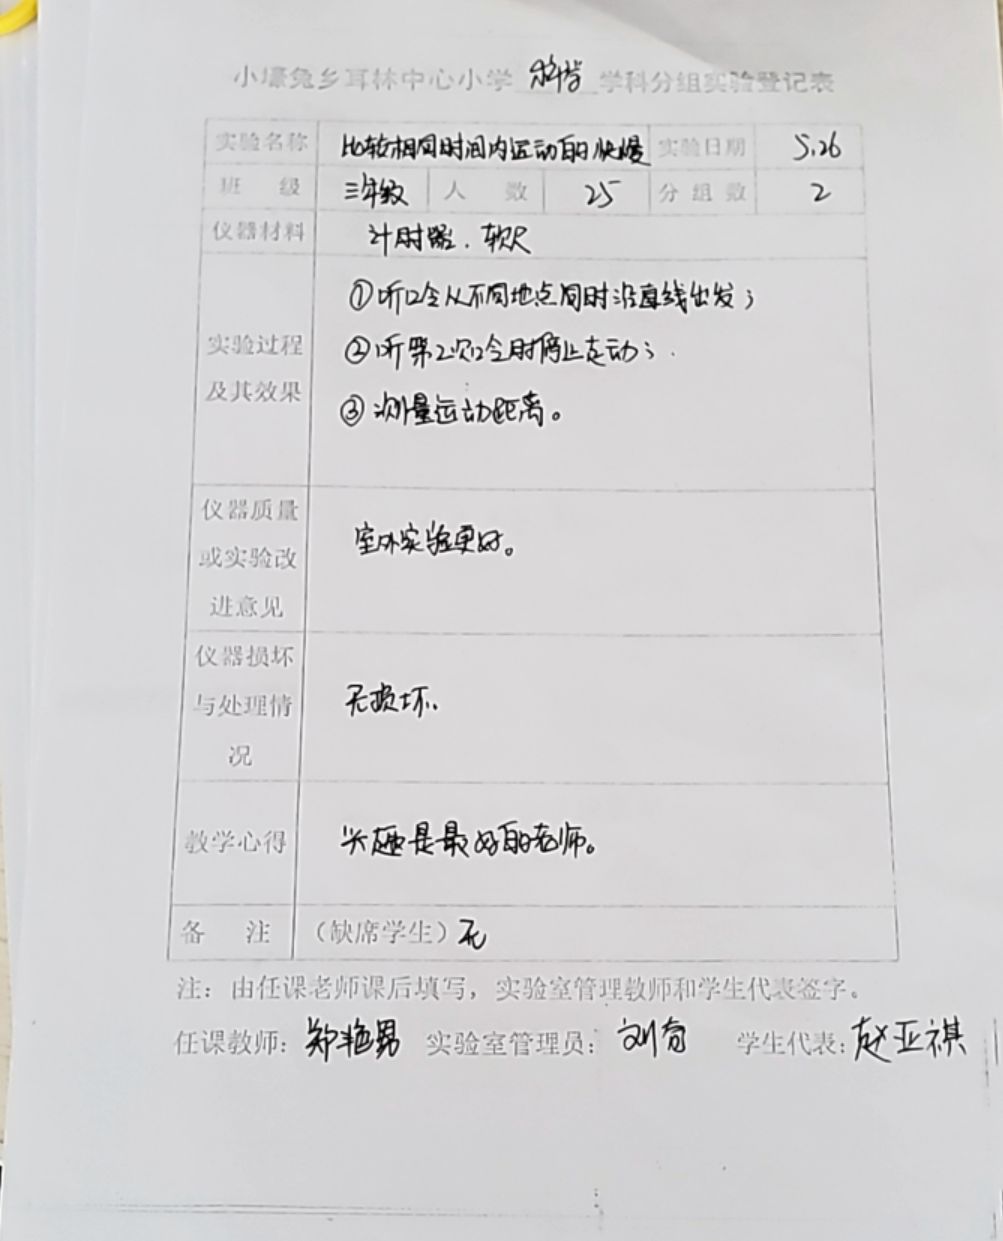 小壕兔乡耳林中心小学 科学 学科分组实验登记表
实验名称 比较相同时间内运动的快慢 实验日期 5.26
班 级 三年级 人 数 25 分组数 2
仪器材料 计时器、软尺
实验过程
及其效果
①听口令从不同地点同时沿直线出发；
②听第2次口令时停止走动；
③测量运动距离。
仪器质量
或实验改
进意见
室外实验更好。
仪器损坏
与处理情
况
无损坏.
教学心得 兴趣是最好的老师。
备 注 （缺席学生）无
注：由任课老师课后填写，实验室管理教师和学生代表签字。
任课教师：郑艳男 实验室管理员：刘 学生代表：赵亚祺